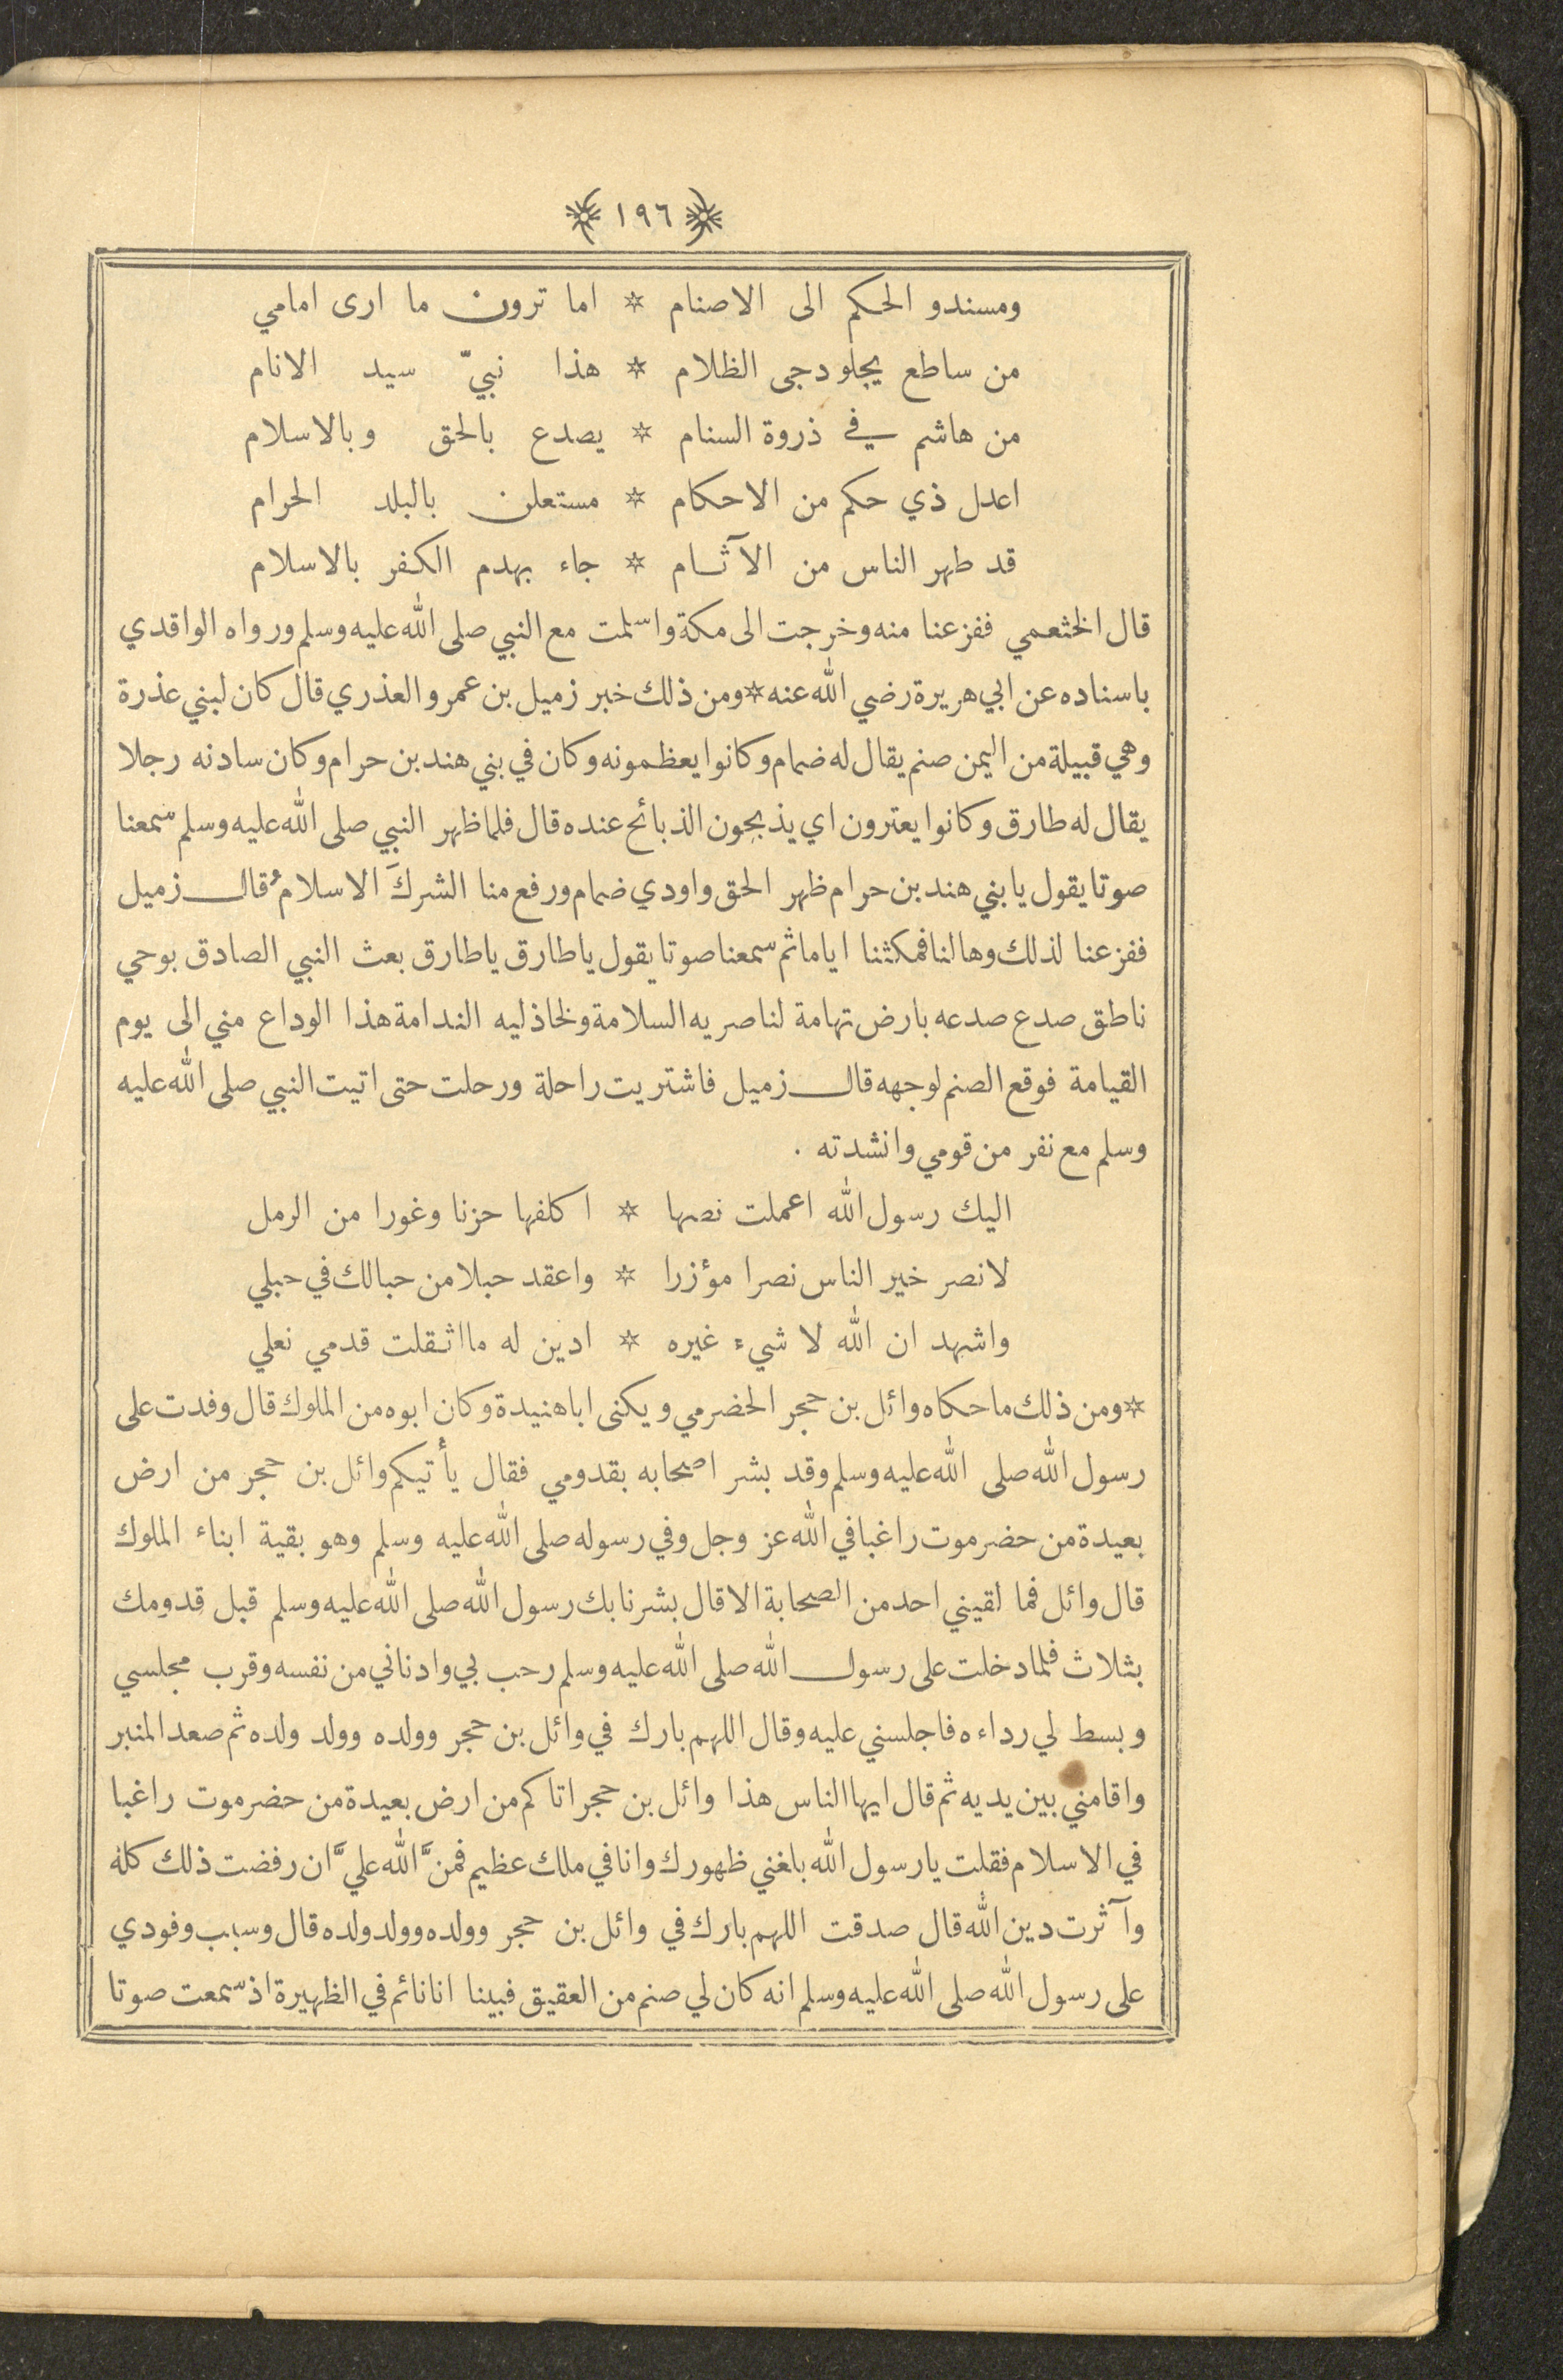 ١٩٦
ومسندو الحكم الى الاصنام * اما ترون ما ارى امامي
من ساطع يجلودجى الظلام * هذا نبيّ سيد الانام
من هاشم في ذروة السنام * يصدع بالحق وبالاسلام
اعدل ذي حكم من الاحكام * مستعلن بالبلد الحرام
قد طهر الناس من الآثام * جاء بهدم الكفر بالاسلام
قال الخثعمي ففزعنا منه وخرجت الى مكة واسلمت مع النبي صلى الله عليه وسلم ورواه الواقدي
باسناده عن ابي هريرة رضي الله عنه * ومن ذلك خبر زميل بن عمرو العذري قال كان لبني عذرة
وهي قبيلة من اليمن صنم يقال له ضمام وكانوا يعظمونه وكان في بني هند بن حرام وكان سادنه رجلا
يقال له طارق وكانوا يعترون اي يذبحون الذبائح عنده قال فلما ظهر النبي صلى الله عليه وسلم سمعنا
صوتا يقول يا بني هند بن حرام ظهر الحق واودي ضمام ورفع منا الشركَ الاسلامُ قال زميل
ففزعنا لذلك وهالنا فمكثنا اياما ثم سمعنا صوتا يقول يا طارق يا طارق بعث النبي الصادق بوحي
ناطق صدع صدعه بارض تهامة لناصريه السلامة ولخاذليه الندامة هذا الوداع مني الى يوم
القيامة فوقع الصنم لوجهه قال زميل فاشتريت راحلة ورحلت حتى اتيت النبي صلى الله عليه
وسلم مع نفر من قومي وانشدته .
اليك رسول الله اعملت نصها * اكلفها حزنا وغورا من الرمل
لانصر خير الناس نصرا مؤزرا * واعقد حبلا من حبالك في حبلي
واشهد ان الله لا شيء غيره * ادين له ما اثقلت قدمي نعلي
* ومن ذلك ما حكاه وائل بن حجر الحضرمي ويكنى ابا هنيدة وكان ابوه من الملوك قال وفدت على
رسول الله صلى الله عليه وسلم وقد بشر اصحابه بقدومي فقال يأتيكم وائل بن حجر من ارض
بعيدة من حضرموت راغبا في الله عز وجل وفي رسوله صلى الله عليه وسلم وهو بقية ابناء الملوك
قال وائل فما لقيني احد من الصحابة الا قال بشرنا بك رسول الله صلى الله عليه وسلم قبل قدومك
بثلاث فلما دخلت على رسول الله صلى الله عليه وسلم رحب بي وادناني من نفسه وقرب مجلسي
وبسط لي رداءه فاجلسني عليه وقال اللهم بارك في وائل بن حجر وولده وولد ولده ثم صعد المنبر
واقامني بين يديه ثم قال ايها الناس هذا وائل بن حجر اتاكم من ارض بعيدة من حضرموت راغبا
في الاسلام فقلت يا رسول الله بلغني ظهورك وانا في ملك عظيم فمنَّ الله عليَّ ان رفضت ذلك كله
وآثرت دين الله قال صدقت اللهم بارك في وائل بن حجر وولده وولد ولده قال وسبب وفودي
على رسول الله صلى الله عليه وسلم انه كان لي صنم من العقيق فبينا انا نائم في الظهيرة اذ سمعت صوتا